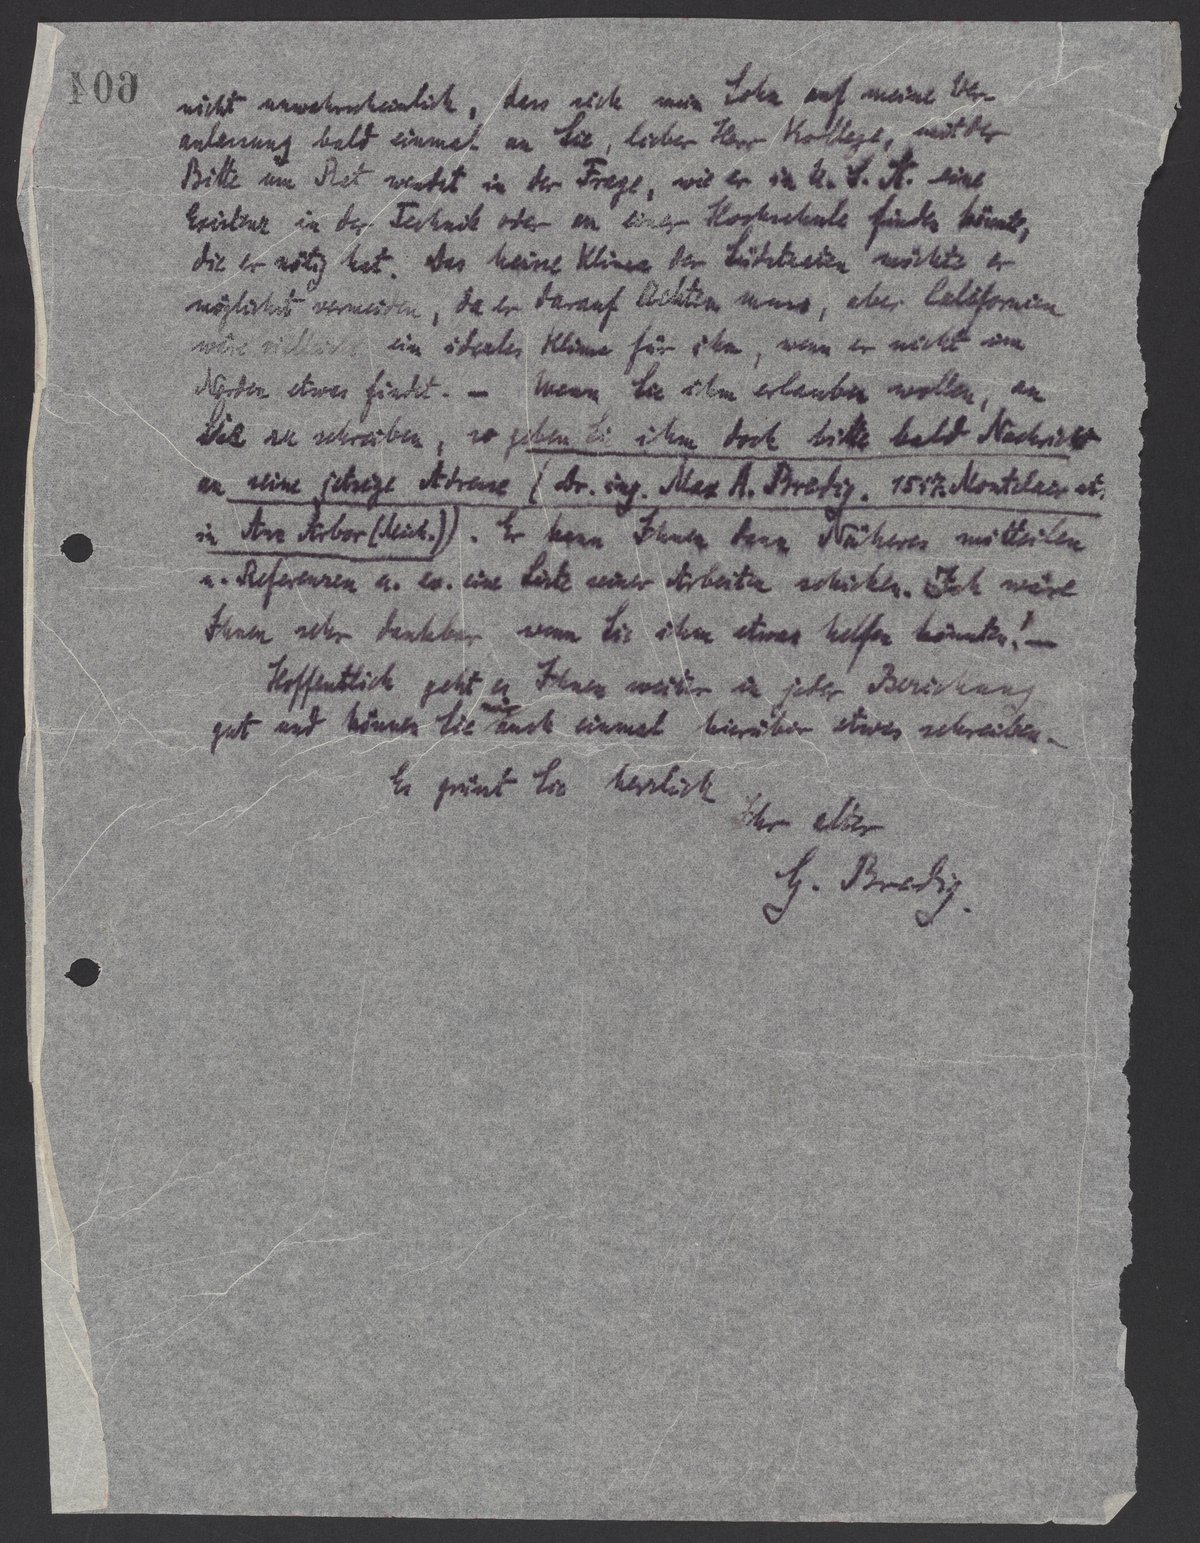 604
nicht unwahrscheinlich, dass sich mein Sohn auf meine Ver-
anlassung bald einmal an Sie, lieber Herr Kollege, mit der
Bitte um Rat wendet in der Frage, wie er in U.S.A. eine
Existenz in der Technik oder an einer Hochschule finden könnte,
die er nötig hat. Das heisse Klima der Südstaaten möchte er
möglichst vermeiden, da er darauf achten muss, aber Californien
wäre vielleicht ein ideales Klima für ihn, wenn er nicht im
Norden etwas findet. — Wenn Sie ihm erlauben wollen, an
Sie zu schreiben, so geben Sie ihm doch bitte bald Nachricht
an seine jetzige Adresse (Dr. ing. Max A. Bredig. 1517. Montclair st.
in Ann Arbor (Mich.)). Er kann Ihnen dann Näheres mitteilen
u. Referenzen u. ev. eine Liste seiner Arbeiten schicken. Ich wäre
Ihnen sehr dankbar wenn Sie ihm etwas helfen könnten! —
Hoffentlich geht es Ihnen weiter in jeder Beziehung
gut und können Sie mir auch einmal hierüber etwas schreiben. —
Es grüsst Sie herzlich
Ihr alter
G. Bredig.